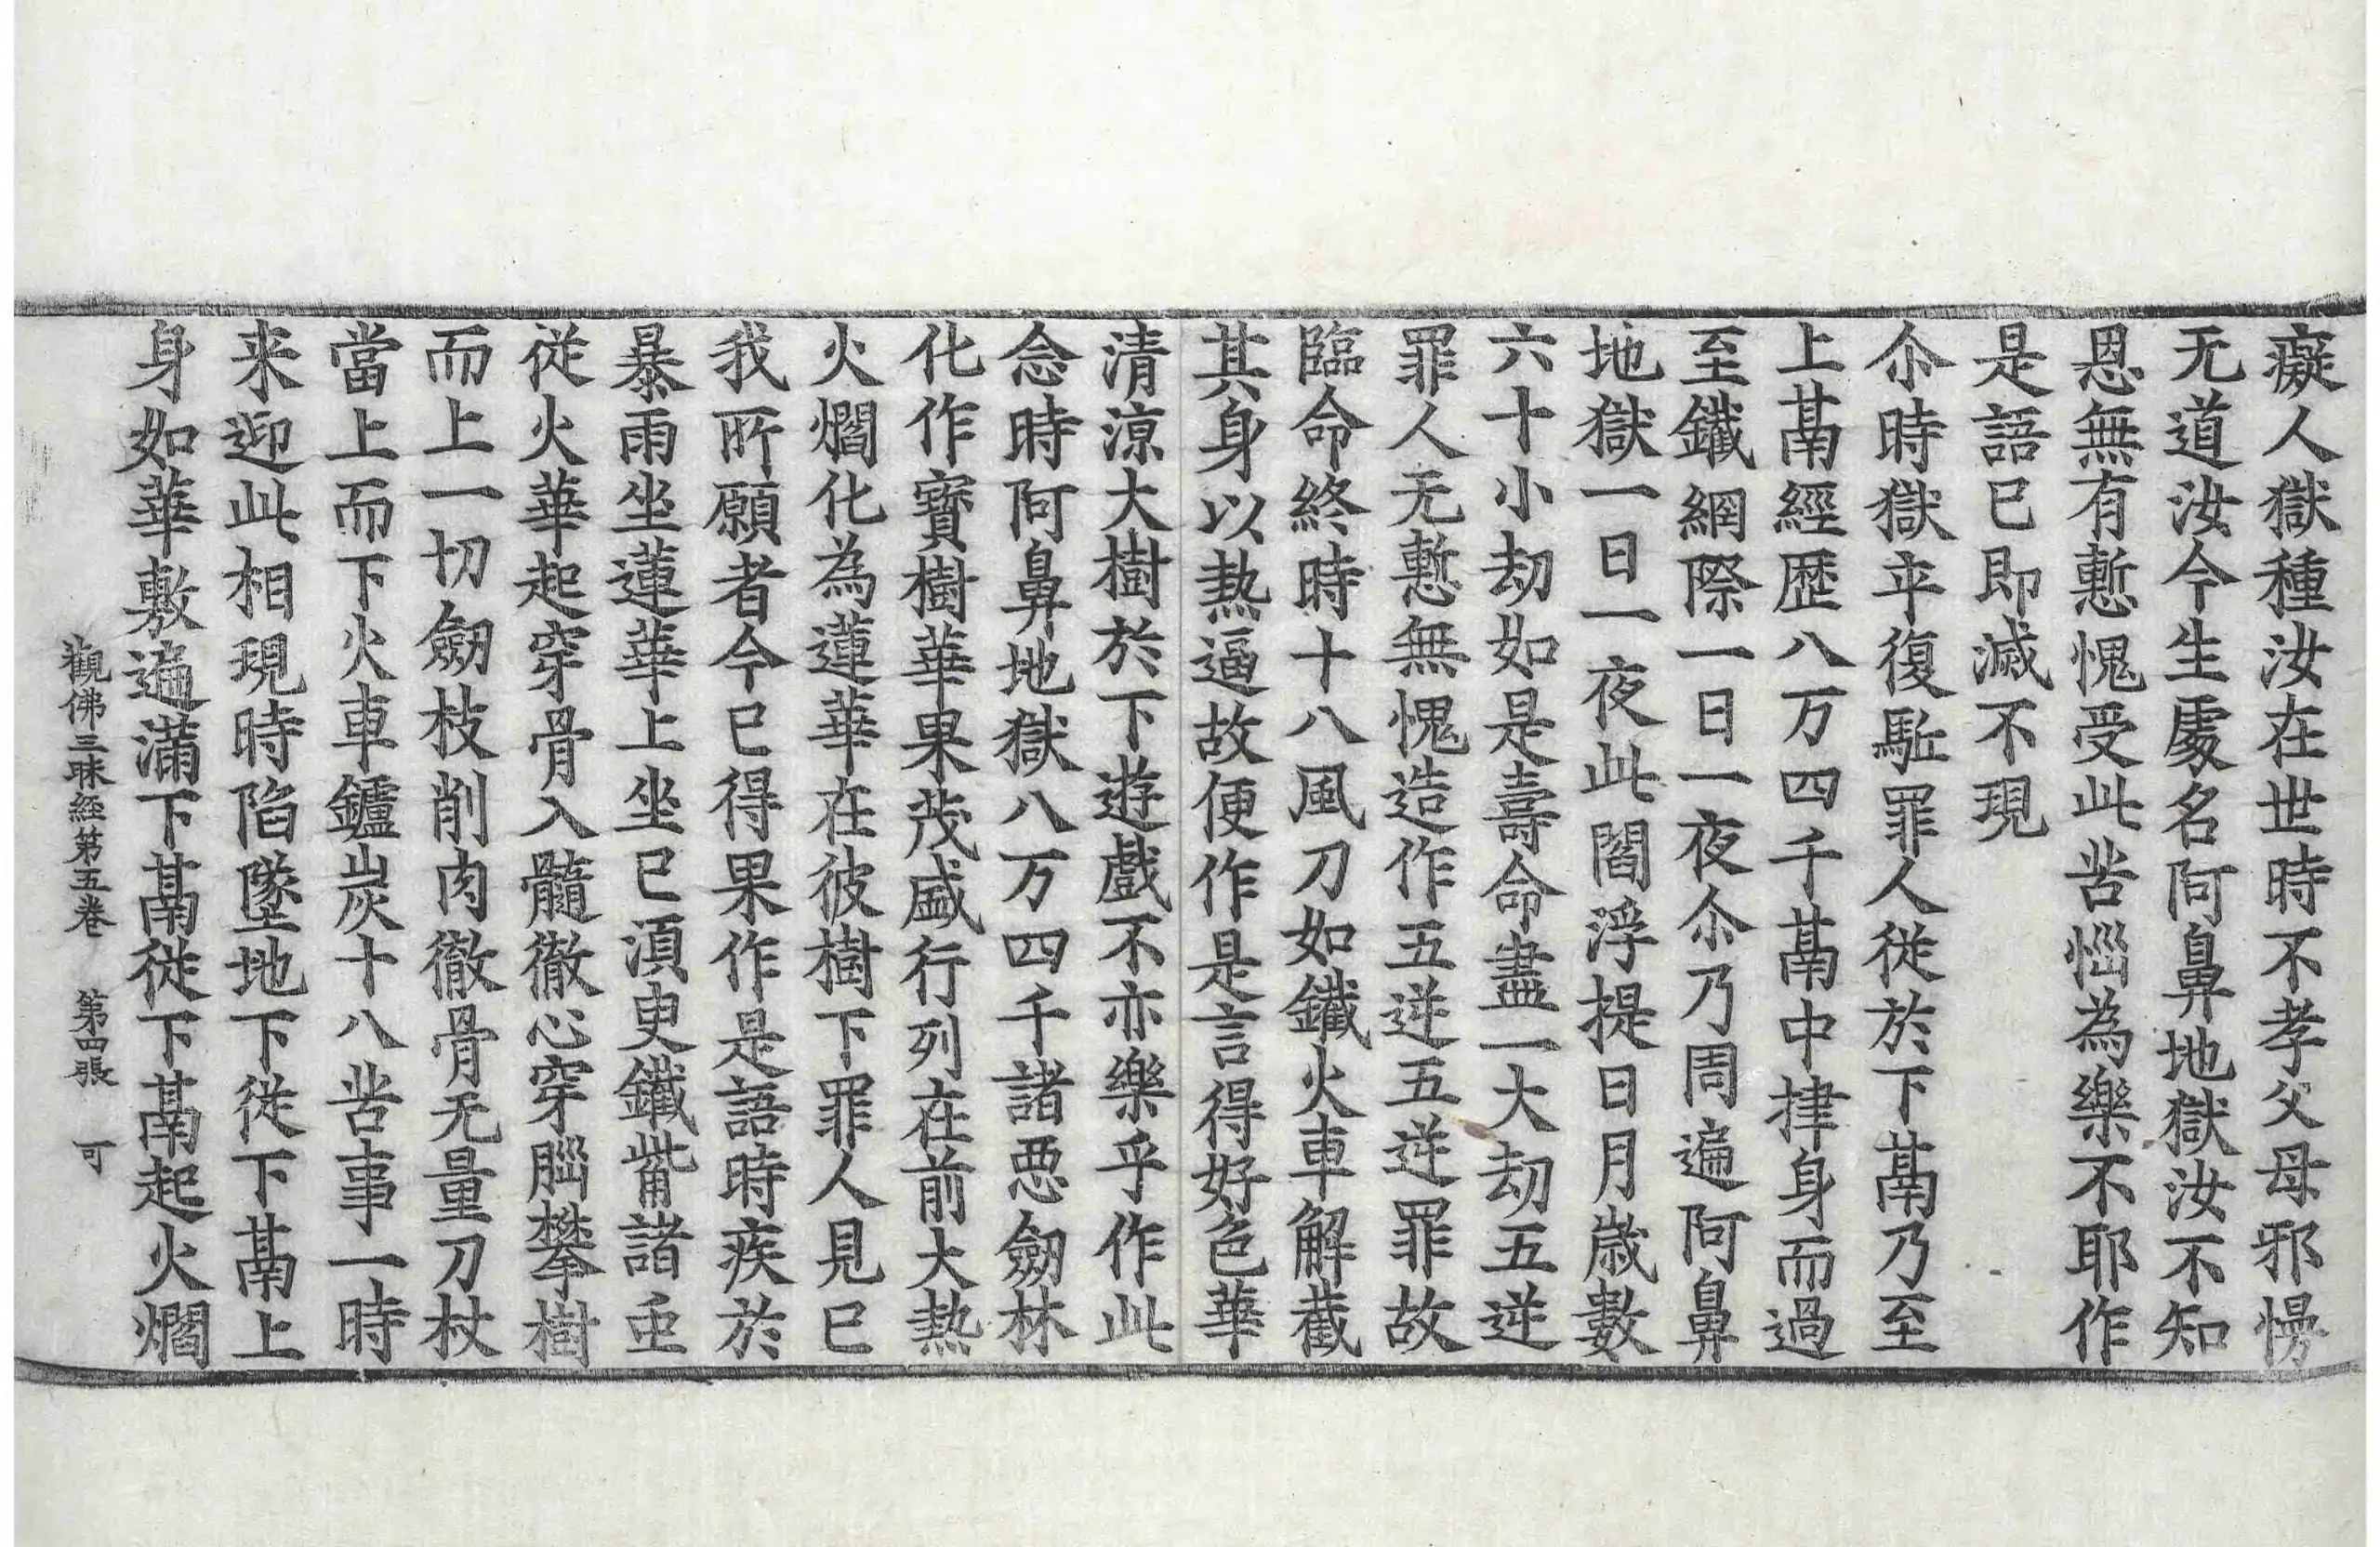 癡人獄種汝在世時不孝父母邪慢
无道汝今生處名阿鼻地獄汝不知
恩無有慙愧受此苦惱為樂不耶作
是語已即滅不現
尒時獄卒復駈罪人從於下鬲乃至
上鬲經歷八万四千鬲中揵身而過
至鐵網際一日一夜尒乃周遍阿鼻
地獄一日一夜此閻浮提日月歲數
六十小劫如是壽命盡一大劫五逆
罪人无慙無愧造作五逆五逆罪故
臨命終時十八風刀如鐵火車解截
其身以熱逼故便作是言得好色華
清涼大樹於下遊戲不亦樂乎作此
念時阿鼻地獄八万四千諸惡劒林
化作寶樹華果茂盛行列在前大熱
火爓化為蓮華在彼樹下罪人見已
我所願者今已得果作是語時疾於
暴雨坐蓮華上坐已湏臾鐵觜諸䖝
從火華起穿骨入髓徹心穿腦攀樹
而上一切劒枝削肉徹骨无量刀杖
當上而下火車鑪炭十八苦事一時
来迎此相現時陷墜地下從下鬲上
身如華敷遍滿下鬲從下鬲起火爓
觀佛三昧經第五卷 第四張 可